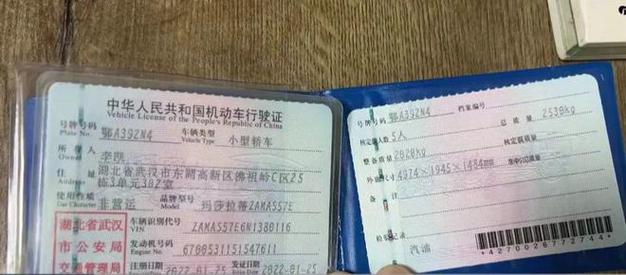 中华人民共和国机动车行驶证
Vehicle License of the People's Republic of China
号牌号码 鄂A392N4 车辆类型 小型轿车
Plate No. Vehicle Type
所有人 李
Owner
住址 湖北省武汉市东湖高新区佛祖岭C区25
Address 栋3单元302室
使用性质 非营运 品牌型号 玛莎拉蒂ZAMAS57E
Use Character Model
湖北省武汉
市公安局
交通管理局
车辆识别代号 ZAMAS57E6N1380116
VIN
发动机号码 6700531151547611
Engine No.
注册日期 2022-01-25 发证日期 2022-01-25
号牌号码 鄂A392N4 档案编号
核定载人数 5人 总质量 2530kg
整备质量 2020kg 核定载质量
外廓尺寸 4374×1945×1484 准牵引总质量
备注
检验记录
汽油
*4270026772744*